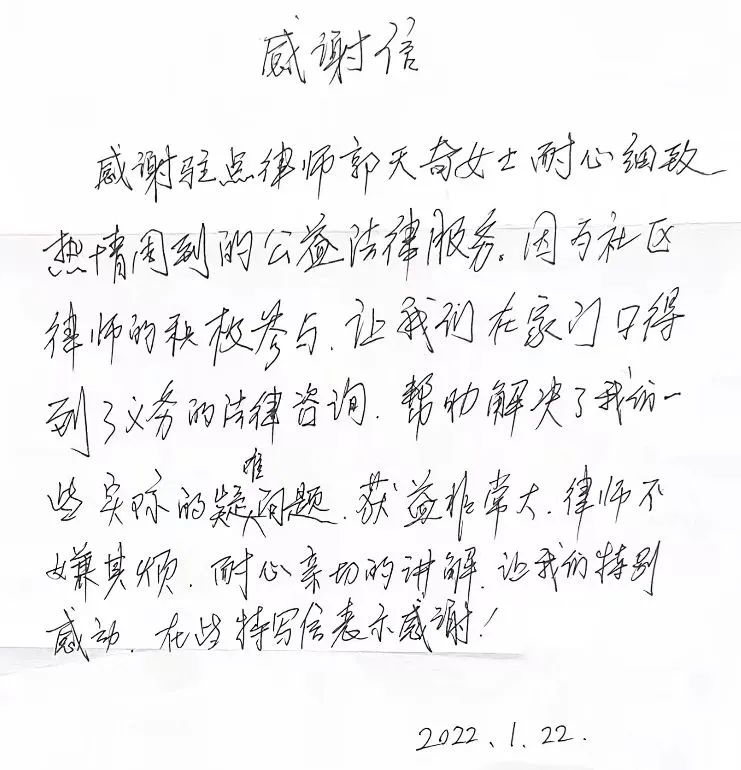 感谢信
感谢驻点律师郭天奇女士耐心细致
热情周到的公益法律服务。因为社区
律师的积极参与、让我们在家门口得
到了义务的法律咨询、帮助解决了我们一
些实际的疑难问题、获益非常大、律师不
嫌其烦、耐心亲切的讲解、让我们特别
感动、在此特写信表示感谢！
2022、1、22.